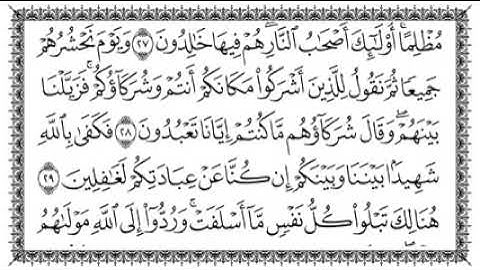 مُظْلِمًا ۚ أُو۟لَٰٓئِكَ أَصْحَٰبُ ٱلنَّارِ ۖ هُمْ فِيهَا خَٰلِدُونَ ٢٧ وَيَوْمَ نَحْشُرُهُمْ
جَمِيعًا ثُمَّ نَقُولُ لِلَّذِينَ أَشْرَكُوا۟ مَكَانَكُمْ أَنتُمْ وَشُرَكَآؤُكُمْ ۚ فَزَيَّلْنَا
بَيْنَهُمْ ۖ وَقَالَ شُرَكَآؤُهُم مَّا كُنتُمْ إِيَّانَا تَعْبُدُونَ ٢٨ فَكَفَىٰ بِٱللَّهِ
شَهِيدًۢا بَيْنَنَا وَبَيْنَكُمْ إِن كُنَّا عَنْ عِبَادَتِكُمْ لَغَٰفِلِينَ ٢٩
هُنَالِكَ تَبْلُوا۟ كُلُّ نَفْسٍ مَّآ أَسْلَفَتْ ۚ وَرُدُّوٓا۟ إِلَى ٱللَّهِ مَوْلَىٰهُمُ